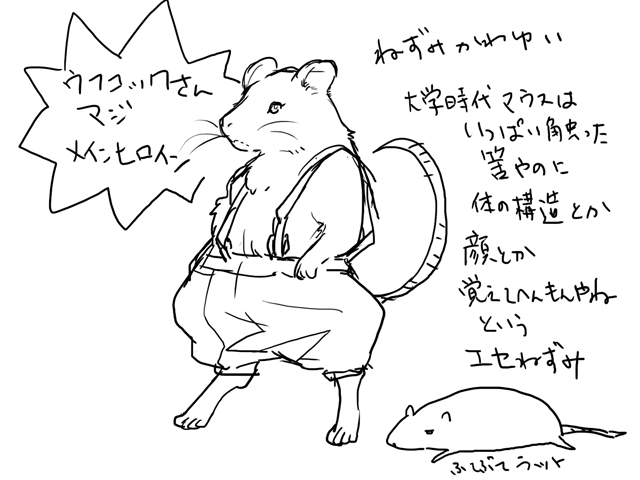 ウフコックさん
マジ
メインヒロイン
ねずみかわゆい
大学時代マウスは
いっぱい触った
筈やのに
体の構造とか
顔とか
覚えてへんもんやね
という
エセねずみ
ふてぶてラット